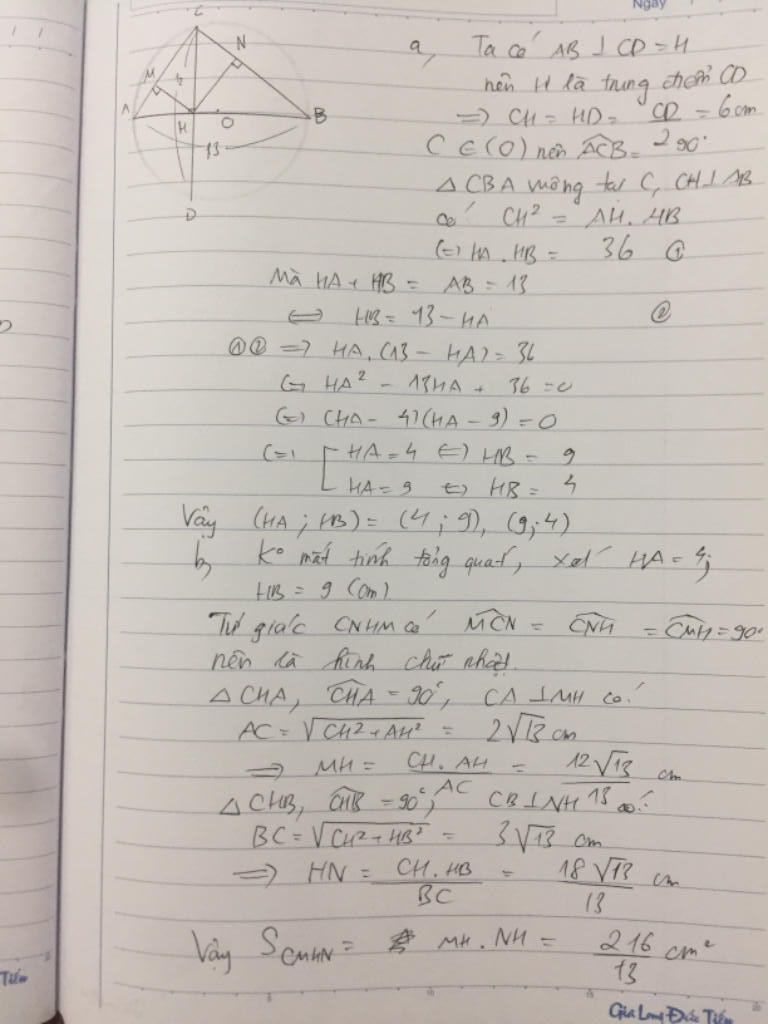 Ngày
C
N
M
A
H
O
B
13
D
a, Ta có AB ⊥ CD = H
nên H là trung điểm CD
=> CH = HD = CD/2 = 6cm
C ∈ (O) nên ACB = 90°
△ CBA vuông tại C, CH ⊥ AB
có CH² = AH. HB
(=) HA. HB = 36 ①
Mà HA + HB = AB = 13
<=> HB = 13 - HA ②
①② => HA. (13 - HA) = 36
(=) HA² - 13HA + 36 = 0
(=) (HA - 4)(HA - 9) = 0
(=) [ HA = 4 (=) HB = 9
HA = 9 (=) HB = 4
Vậy (HA ; HB) = (4 ; 9), (9; 4)
b, K° mất tính tổng quát, xét HA = 4;
HB = 9 (cm)
Tứ giác CNHM có MCN = CNH = CMH = 90°
nên là hình chữ nhật.
△ CHA, CHA = 90°, CA ⊥ MH có:
AC = √(CH² + AH²) = 2√13 cm
=> MH = CH. AH / AC = 12√13 / 13 cm
△ CHB, CHB = 90°, CB ⊥ NH có:
BC = √(CH² + HB²) = 3√13 cm
=> HN = CH. HB / BC = 18√13 / 13 cm
Vậy S CMHN = MH. NH = 216/13 cm²
Tiến
Gia Long Đức Tiến